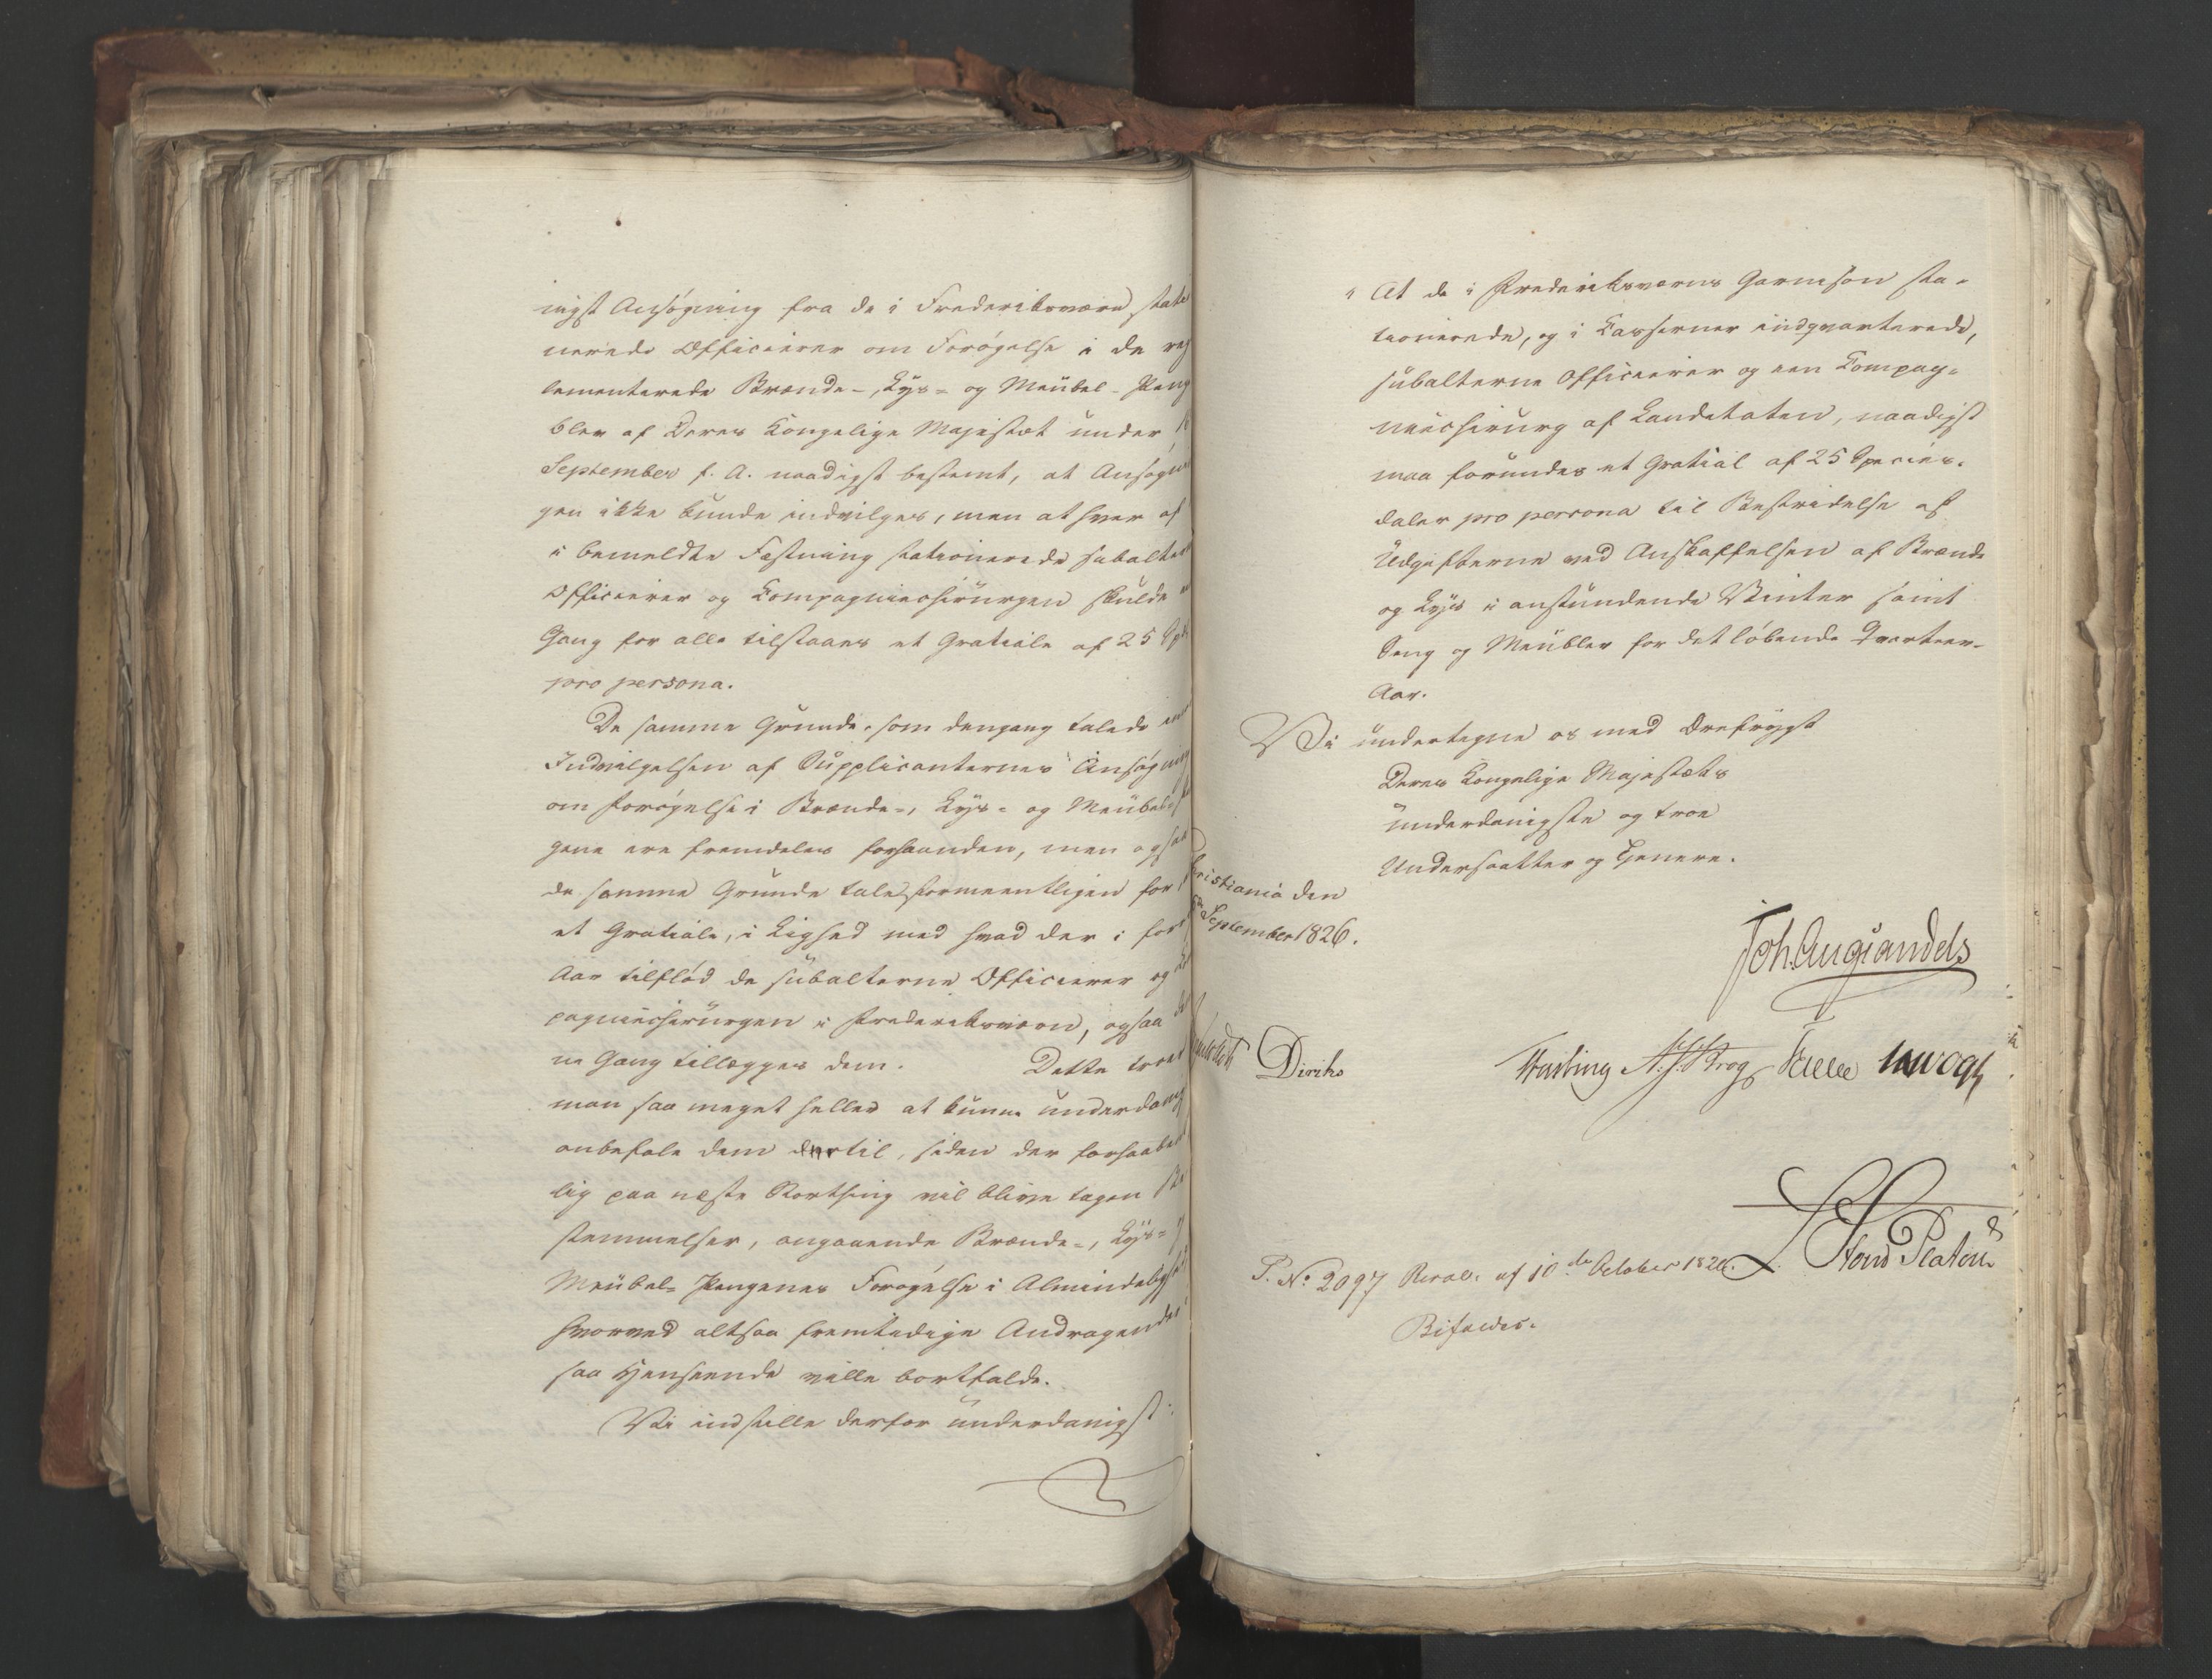 nigst Ansøgning fra de i Frederiksværn statio
nerede Officierer om Forøgelse i de reg
lementerede Brænde-, Lys- og Meubel-Peng
blev af Deres Kongelige Majestæt under
September f. A. naadigst bestemt, at Ansøgnin
gen ikke kunde indvilges, men at hver af
i bemeldte Fæstning stationerede subaltern
Officierer og Compagniechirurgen skulde en
Gang for alle tilstaaes et Gratiale af 25 Spd
pro persona.
De samme Grunde, som dengang talede imod
Indvilgelsen af Supplicanternes Ansøgning
om Forøgelse i Brænde-, Lys- og Meubel-
gene ere fremdeles forhaanden, men ogsaa
de samme Grunde tale formeentligen for
et Gratiale, i Lighed med hvad der i forr
Aar tilflød de subalterne Officierer og
pagniechirurgen i Frederiksværn, ogsaa
ne Gang tillægges dem. Dette troer
man saa meget heller at kunne underdanig
anbefale dem dertil, siden der forhaabent
lig paa næste Storthing vil blive tagen Be
stemmelser, angaaende Brænde-, Lys-
Meubel-Pengenes Forøgelse i Almindelighed
hvorved altsaa fremtidige Andragender
saa Henseende ville bortfalde.
Vi indstille derfor underdanigst:
At de i Frederiksværns Garnison sta-
tionerede, og i Casserner indqvarterede,
subalterne Officierer og een Compag-
niechirurg af Landetaten, naadigst
maa forundes et Gratial af 25 Species-
daler pro persona til Bestridelse af
Udgifterne ved Anskaffelsen af Brænde
og Lys i anstundende Vinter samt
Seng og Meubler for det løbende Qvarteer-
Aar.
Vi undertegne os med Ærefrygt
Deres Kongelige Majestæts
underdanigste og troe
Undersaatter og Tjenere.
Christiania den
September 1826.
Joh. Aug. Sandels
Diriks
Hasting N. J. Krog Vogt
S. No 2097 Resol. af 10de October 1826.
Bifaldes.